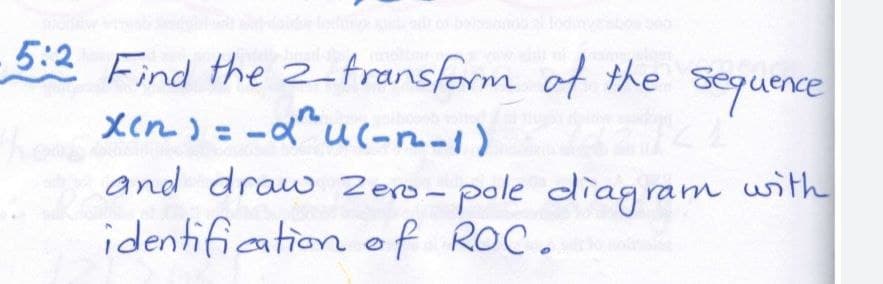 5:2 Find the z-transform of the sequence
x(n) = -αⁿu(-n-1)
and draw zero-pole diagram with
identification of ROC.